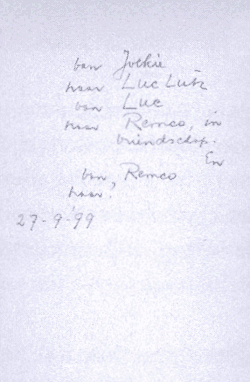 van Jockie
naar Luc Lutz
van Luc
naar Remco, in
vriendschap.
En
van, Remco
naar?
27-9-'99